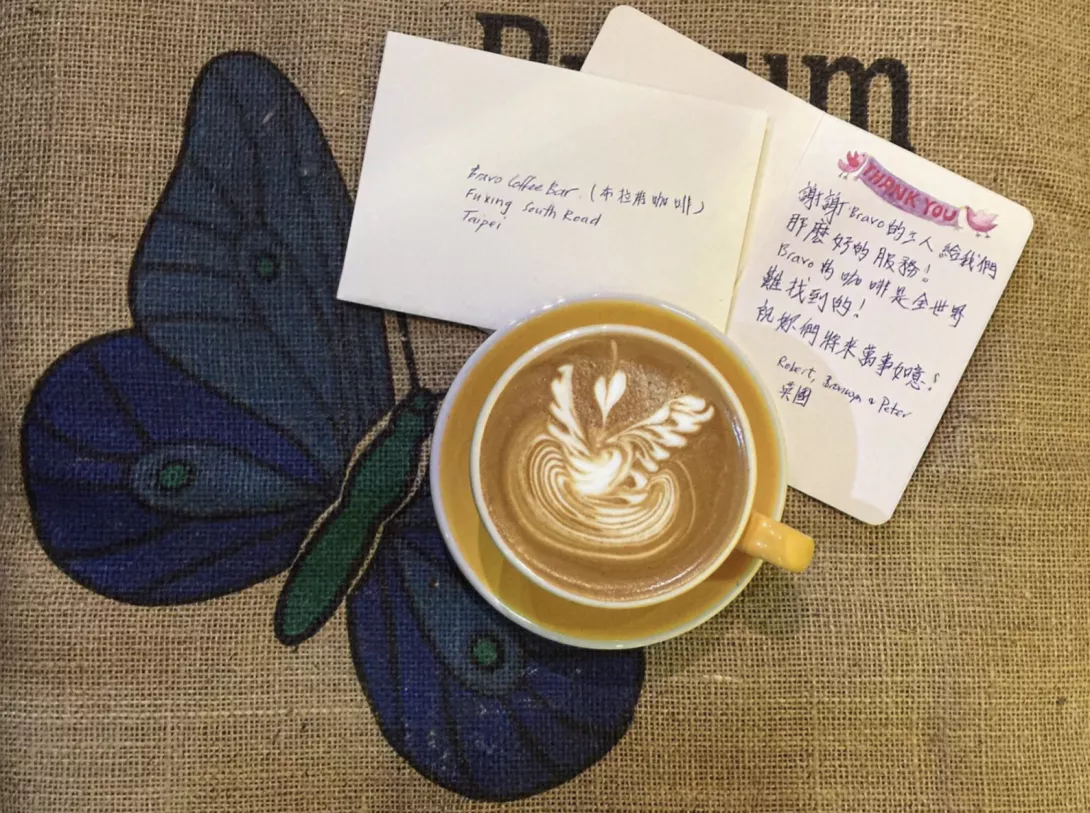 Bravo Coffee Bar. (布拉弗咖啡)
Fuxing South Road
Taipei
THANK YOU
謝謝Bravo的工人給我們
那麼好的服務!
Bravo的咖啡是全世界
難找到的!
祝你們將來萬事如意!
Robert, & Peter
英國